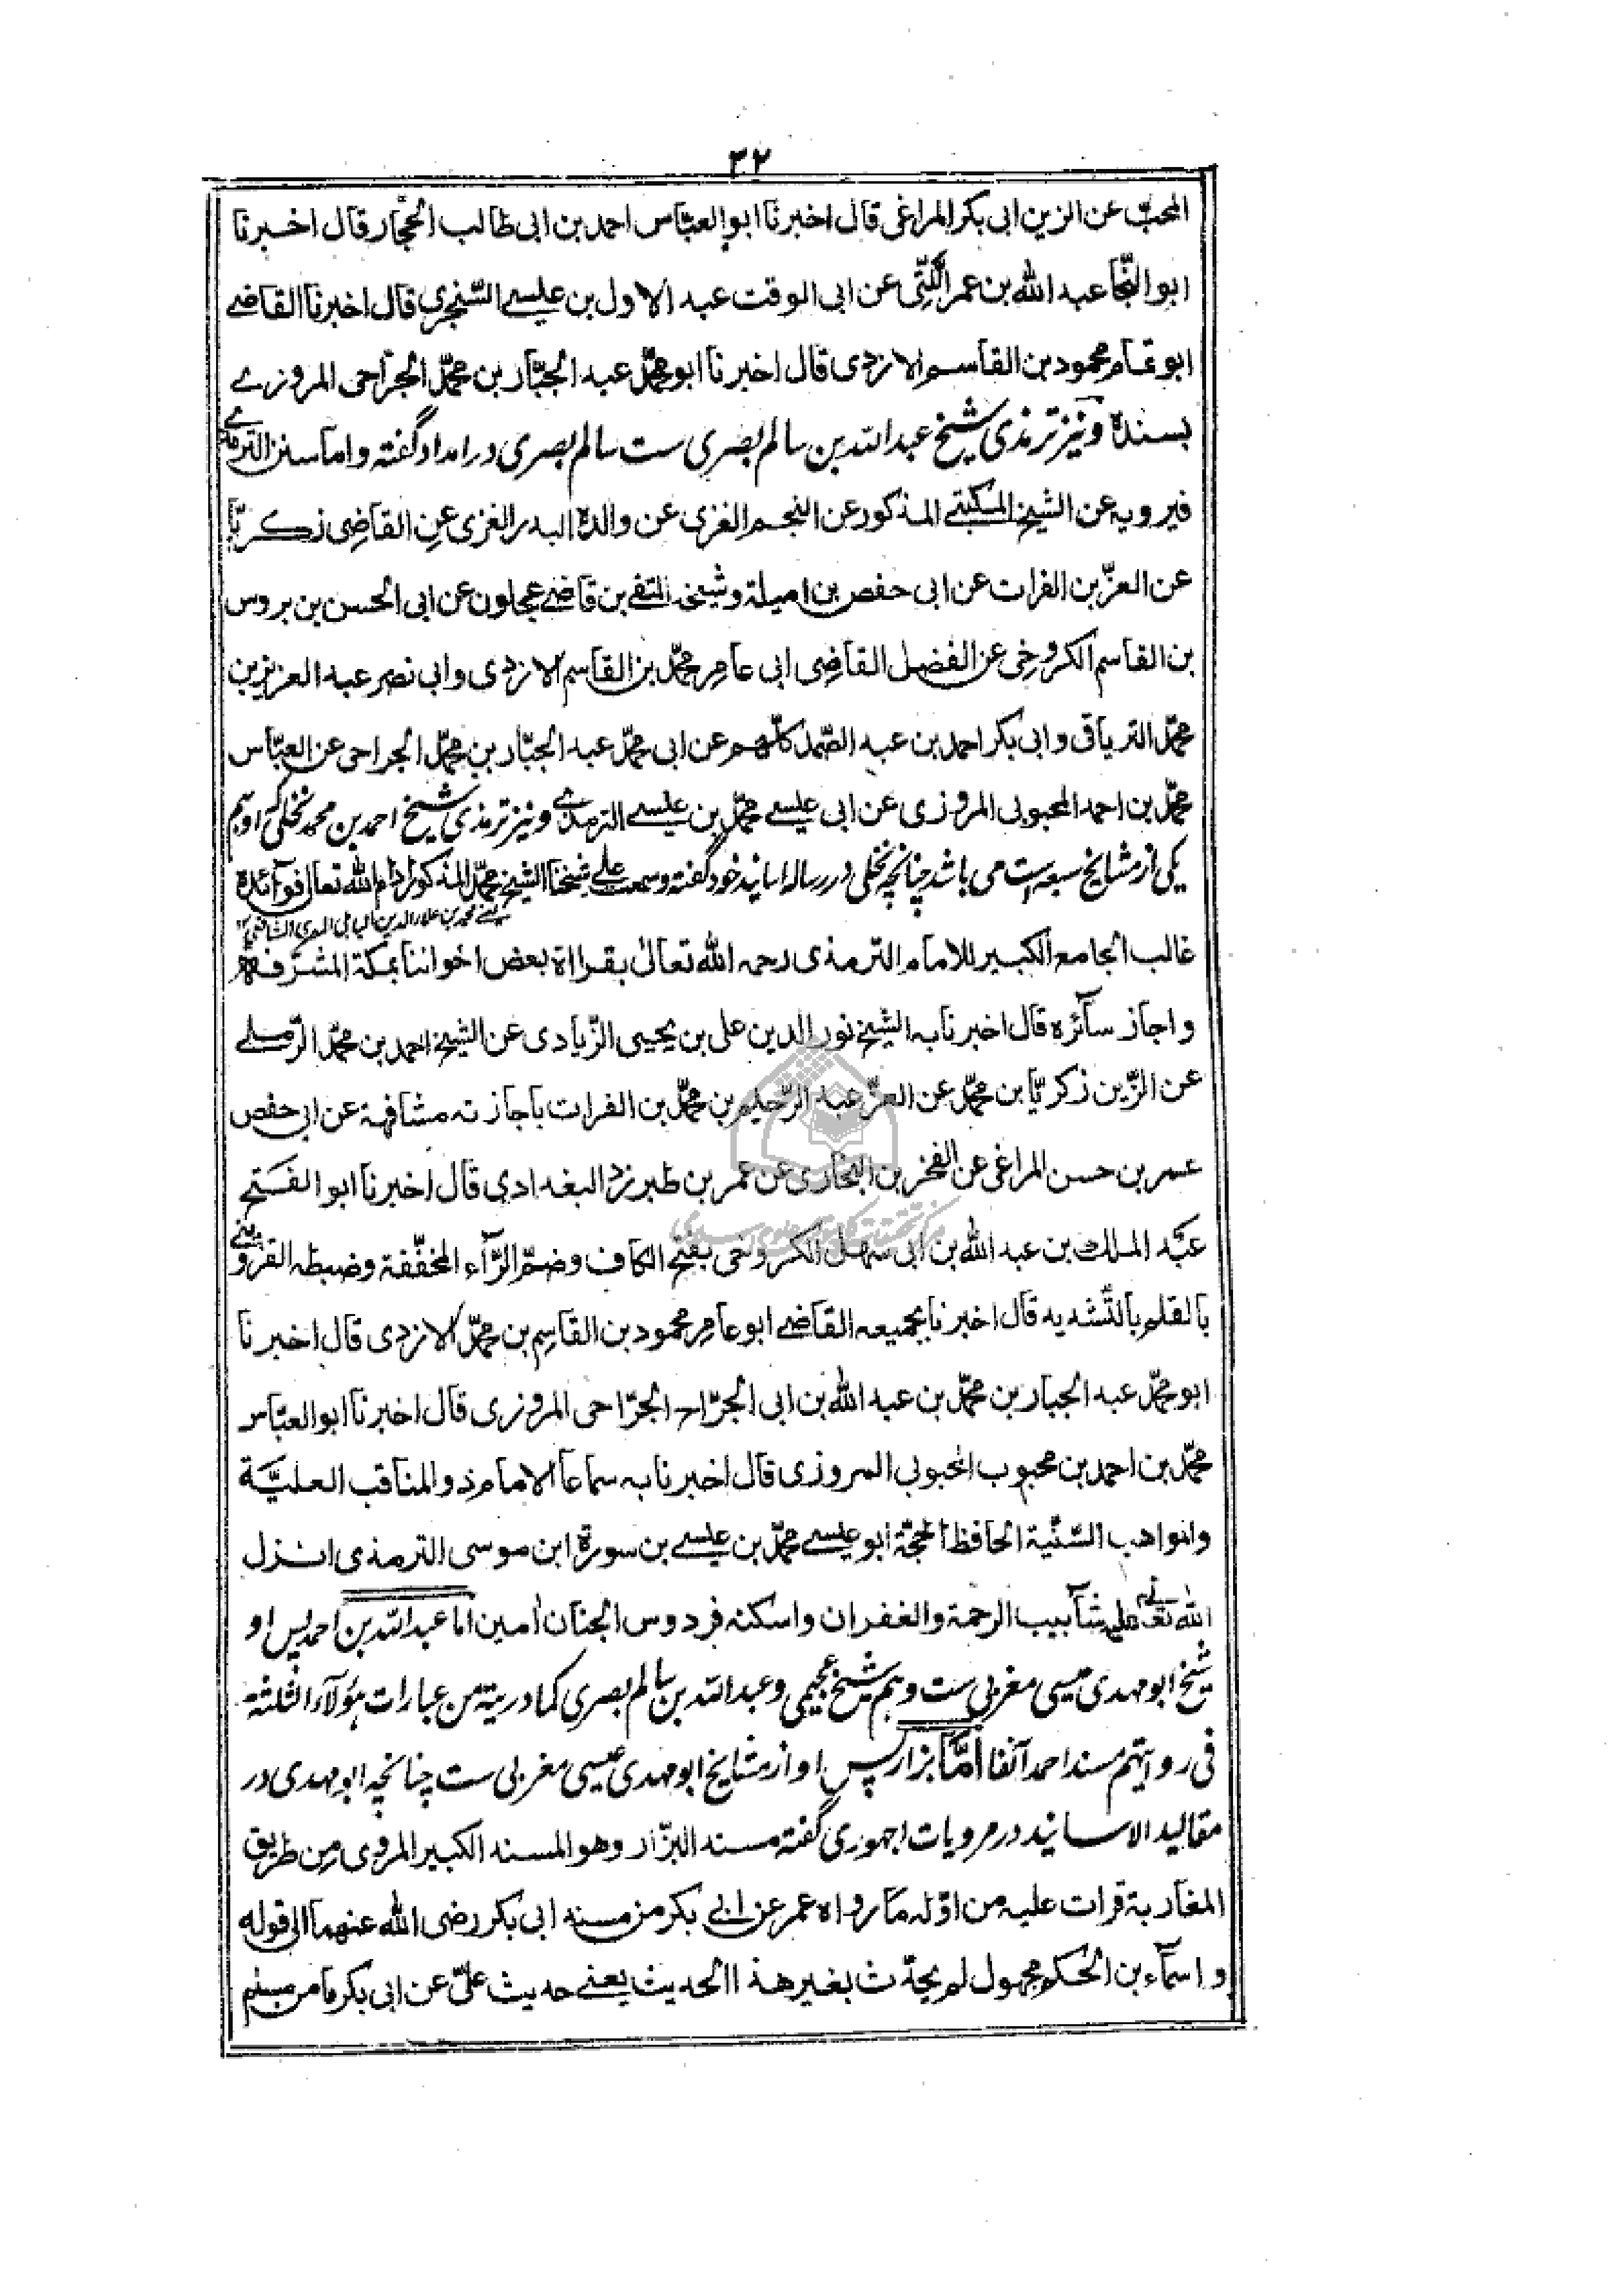 ٣٢
المحبّ عن الزين ابى بكر المراغى قال اخبرنا ابو العبّاس احمد بن ابى طالب الحجّار قال اخبرنا
ابو النّجا عبد الله بن عمر اللّتّى عن ابى الوقت عبد الاول بن عليسے السّنجرى قال اخبرنا القاضے
ابو عامر محمود بن القاسم الازدى قال اخبرنا ابو محمّد عبد الجبّار بن محمّد الجراحى المروزے
بسنده ونيز ترمذى شيخ عبد الله بن سالم بصرى ست سالم بصرى در امداد گفته واما سنن الترمذے
فيرويه عن الشيخ المكبتے المذكور عن النجم الغزى عن والده البدر الغزى عن القاضى زكريّا
عن العزّ بن الفرات عن ابى حفص بن اميلة وشيخه التقے بن قاضے عجلون عن ابى الحسن بن بروس
بن القاسم الكروخى عن الفضل القاضى ابى عامر محمّد بن القاسم الازدى وابى نصر عبد العزيز بن
محمّد الترياقى وابى بكر احمد بن عبد الصّمد كلّهم عن ابى محمّد عبد الجبّار بن محمّد الجراحى عن العبّاس
محمّد بن احمد المحبوبى المروزى عن ابى عيسے محمّد بن عيسے الترمذے ونيز ترمذى شيخ احمد بن محمد نخلى كہ او ہم
يكى از مشايخ سبعہ است مى باشد چنانچہ نخلى در رسالہ اسانيد خود گفتہ وسمعت على شيخنا الشيخ محمّد المذكور ادام الله تعالى فوائده
يعنے محمد بن علاء الدين البابلى المصرى الشافعى ١٢
غالب الجامع الكبير للامام الترمذى رحمه الله تعالىٰ بقراءة بعض اخواننا بمكة المشرّفة
واجاز سائره قال اخبرنا به الشيخ نور الدين على بن يحيى الزّيادى عن الشيخ احمد بن محمّد الرّملے
عن الزّين زكريّا بن محمّد عن العزّ عبد الرّحيم بن محمّد بن الفرات باجازته مشافهة عن ابى حفص
عمر بن حسن المراغى عن الفخر بن البخارى عن عمر بن طبرزد البغدادى قال اخبرنا ابو الفتح
عبد الملك بن عبد الله بن ابى سهل الكروخى بفتح الكاف وضمّ الرّاء المخفّفة وضبطه القزوينے
بالقلم بالتّشديد قال اخبرنا بجميعه القاضے ابو عامر محمود بن القاسم بن محمّد الازدى قال اخبرنا
ابو محمّد عبد الجبار بن محمّد بن عبد الله بن ابى الجرّاح الجرّاحى المروزى قال اخبرنا ابو العبّاس
محمّد بن احمد بن محبوب المحبوبى المروزى قال اخبرنا به سماعا الامام ذو المناقب العليّة
والمواهب السّنّية الحافظ الحجّة ابو عيسے محمّد بن عيسے بن سورة ابن موسى الترمذى انزل
الله تعالى عليه شآبيب الرحمة والغفران واسكنه فردوس الجنان اٰمين اما عبد الله بن احمد پس او
شيخ ابو مہدى عيسى مغربى ست وہم شيخ عجيمى وعبد الله بن سالم بصرى كما دريتہ من عبارات ہؤلاء الثلثہ
فى روايتہم مسند احمد آنفا امّا بزار پس او از مشايخ ابو مہدى عيسى مغربى ست چنانچہ ابو مہدى در
مقاليد الاسانيد در مرويات اجہورى گفتہ مسند البزّار وهو المسند الكبير المروى من طريق
المغاربة قرات عليه من اوّله ما رواه عمر عن ابے بكر من مسند ابى بكر رضى الله عنهما الى قوله
واسماء بن الحكم مجهول لم يحدّث بغير هذا الحديث يعنے حديث علىّ عن ابى بكر ما من مسلم